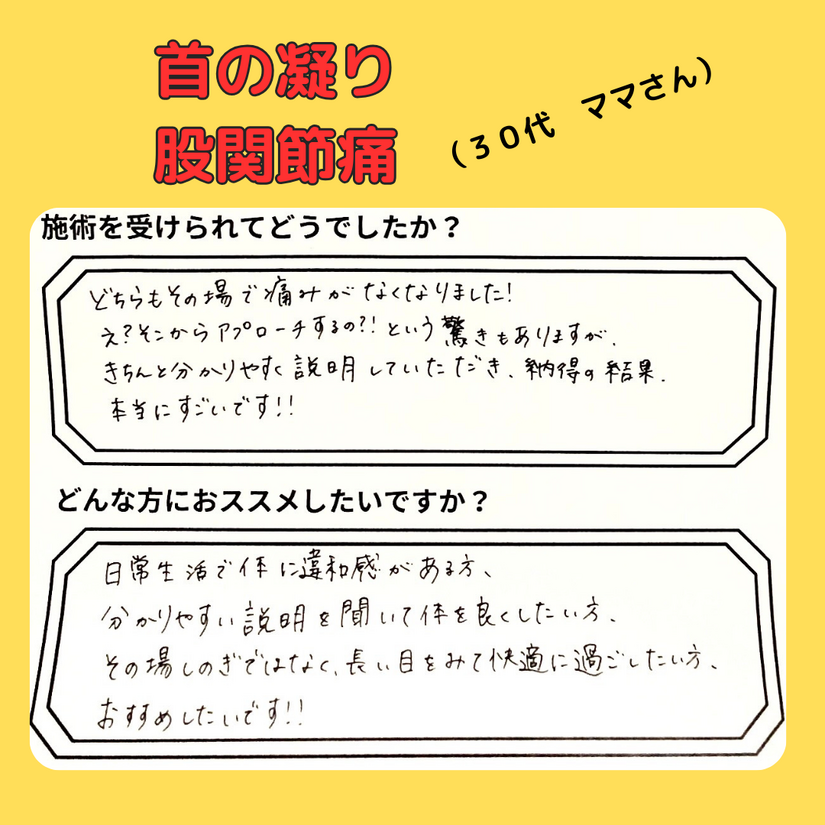 首の凝り
股関節痛
（３０代　ママさん）
施術を受けられてどうでしたか？
どちらもその場で痛みがなくなりました！
え？そこからアプローチするの？！という驚きもありますが、
きちんと分かりやすく説明していただき、納得の結果。
本当にすごいです！！
どんな方におススメしたいですか？
日常生活で体に違和感がある方、
分かりやすい説明を聞いて体を良くしたい方、
その場しのぎではなく、長い目をみて快適に過ごしたい方、
おすすめしたいです！！